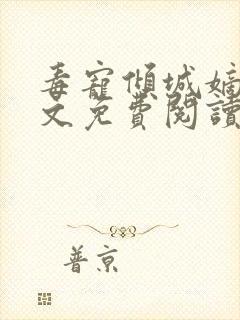 毒寵傾城嫡
文免費閱讀
普京